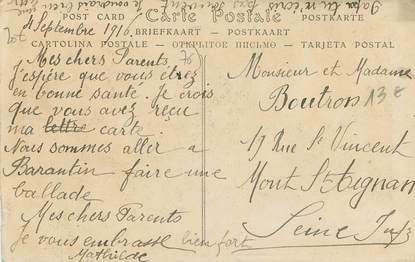 POST CARD Carte Postale POSTKARTE
BRIEFKAART - POSTKAART
CARTOLINA POSTALE - ОТКРЫТОЕ ПИСЬМО - TARJETA POSTAL
4 Septembre 1910
Mes chers Parents
j'espère que vous êtes
en bonne santé. Je crois
que vous avez reçu
ma lettre carte.
Nous sommes aller a
Barantin faire une
ballade
Mes chers Parents
je vous embrasse bien fort
Mathilde
Monsieur et Madame
Boutron 138
17 Rue St Vincent
Mont St Aignan
Seine Infre